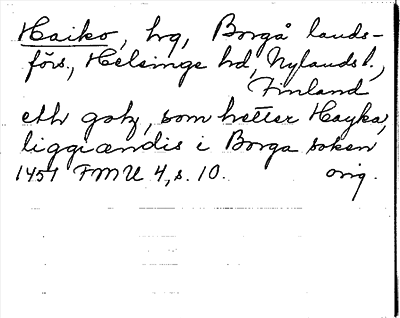 Haiko, hrg, Borgå lands-
förs., Helsinge hd, Nylands l.,
Finland
eth gotz, som hetter Hayka,
liggiændis i Borga soken
1451 FMU 4, s. 10. orig.